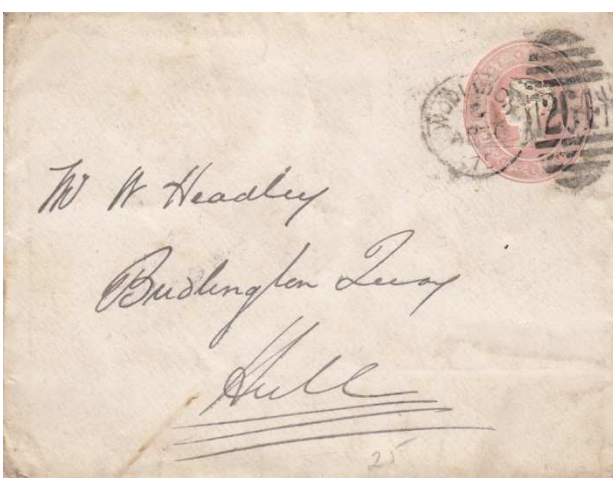 Mr W Headley
Bridlington Quay
Hull
25